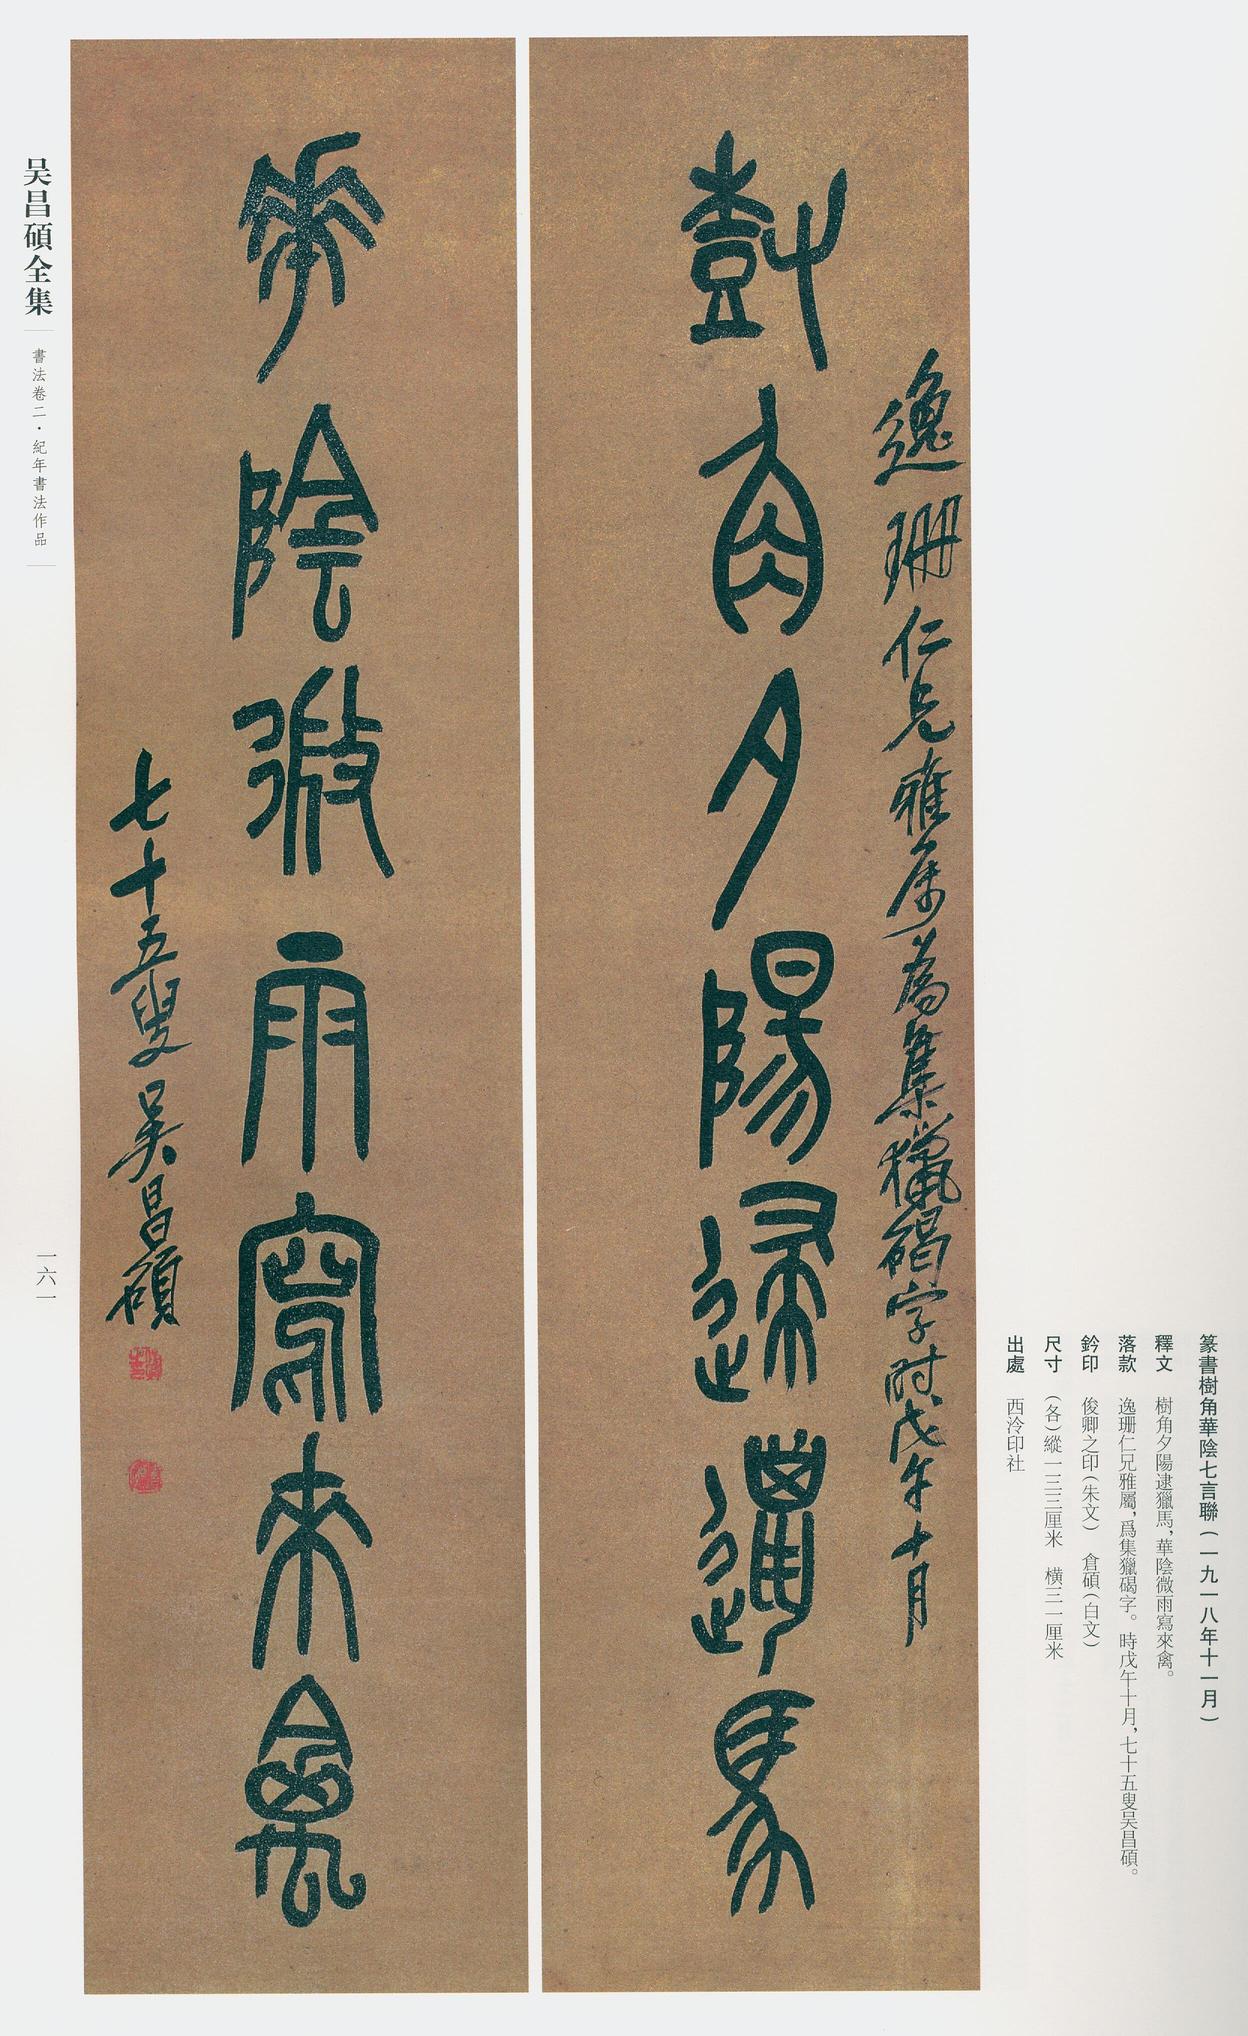 篆書樹角華陰七言聯（一九一八年十一月）
釋文 樹角夕陽逮獵馬，華陰微雨寫來禽。
落款 逸珊仁兄雅屬，爲集獵碣字。時戊午十月，七十五叟吴昌碩。
鈐印 俊卿之印（朱文） 倉碩（白文）
尺寸 （各）縱一三三厘米 横三一厘米
出處 西泠印社
逸珊仁兄雅属為集獵碣字時戊午十月
樹角夕陽歸獵馬
華陰微雨寫來禽
七十五叟吳昌碩
俊卿之印
倉碩
吴昌碩全集
書法卷二·紀年書法作品
一六一